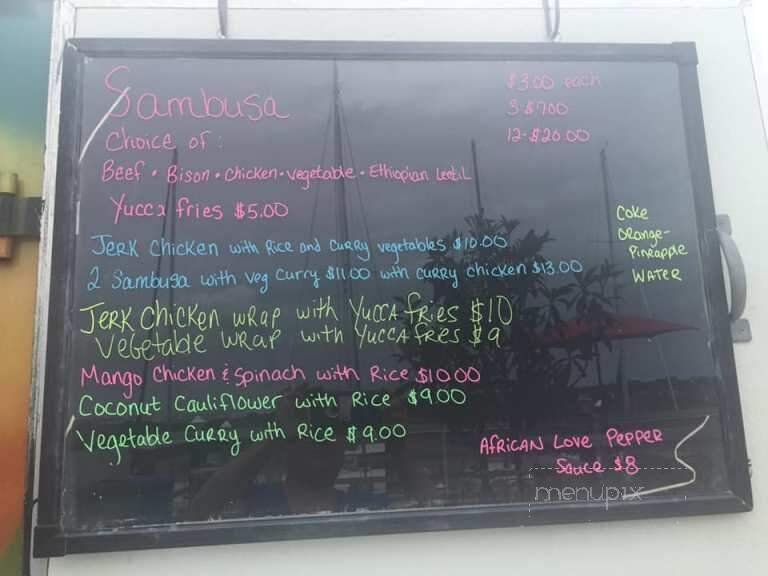 Sambusa
$3.00 each
3-$7.00
12-$20.00
Choice of:
Beef • Bison • Chicken • vegetable • Ethiopian Lentil
Yucca fries $5.00
Jerk Chicken with Rice and Curry vegetables $10.00
2 Sambusa with Veg Curry $11.00 with curry chicken $13.00
Coke
Orange-
Pineapple
Water
Jerk Chicken wrap with Yucca fries $10
Vegetable wrap with Yucca fries $9
Mango Chicken & Spinach with Rice $10.00
Coconut Cauliflower with Rice $9.00
Vegetable Curry with Rice $9.00
African Love Pepper
Sauce $8
menupix